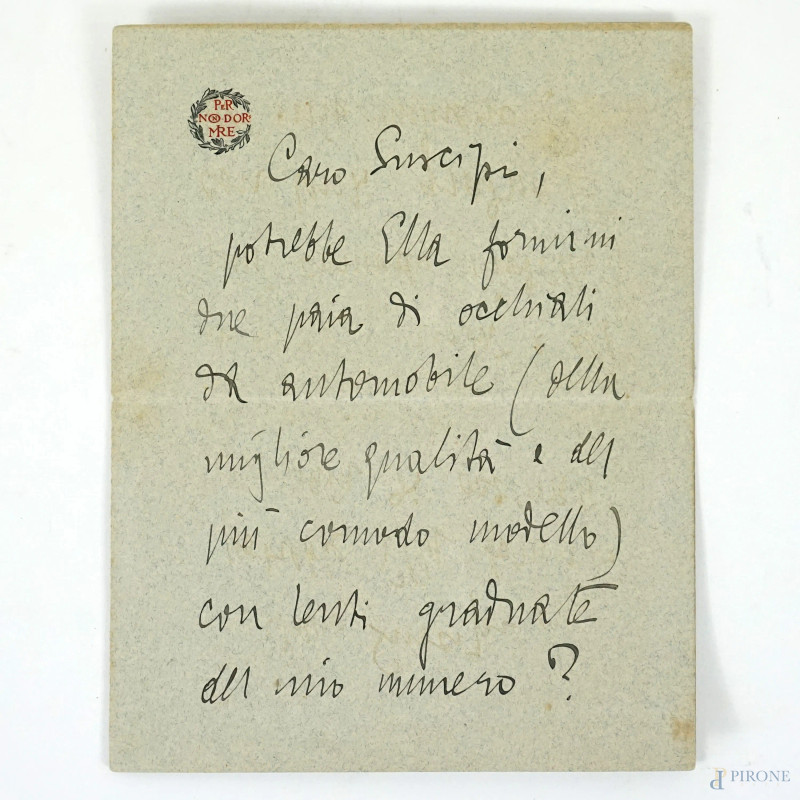 PER
NON DOR
MIRE
Caro Suscipi,
potrebbe Ella fornirmi
due paia di occhiali
da automobile (della
migliore qualità e del
più comodo modello)
con lenti graduate
del mio numero?
PIRONE